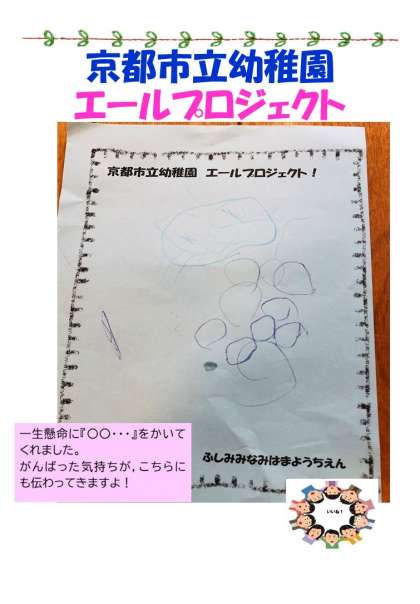 京都市立幼稚園
エールプロジェクト
京都市立幼稚園　エールプロジェクト！
ふしみみなみはまようちえん
一生懸命に『〇〇・・・』をかいて
くれました。
がんばった気持ちが，こちらに
も伝わってきますよ！
いいね！